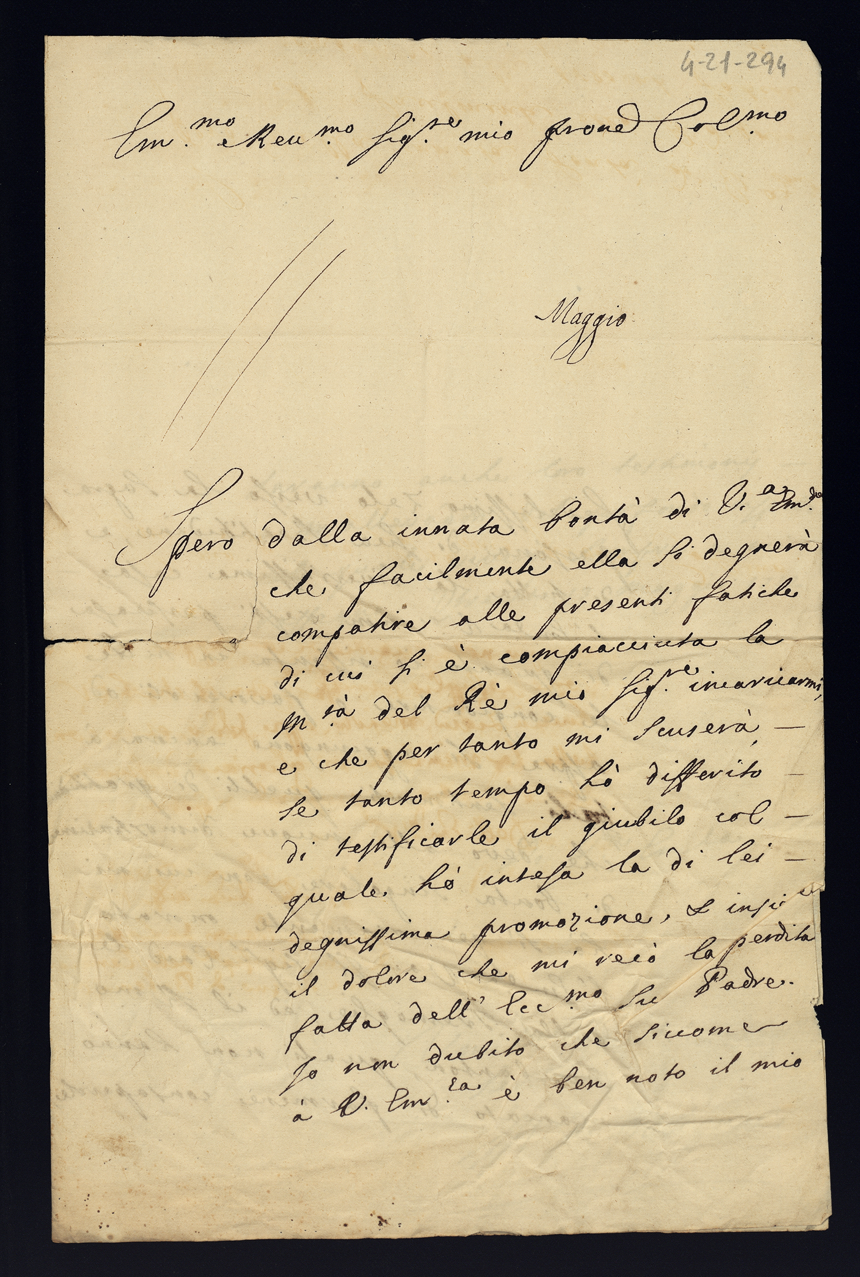 4-21-294
Em.mo e Reu.mo Sig.re mio prone Col.mo
Maggio
Spero dalla innata bontà di V.a Em.
che facilmente ella si degnerà
compatire alle presenti fatiche
di cui si è compiacciuta la
M.tà del Rè mio Sig.re incaricarmi,
e che per tanto mi scuserà, —
se tanto tempo hò differito —
di testificarle il giubilo col —
quale hò intesa la di lei —
degnissima promozione, &
il dolore che mi recò la perdita
fatta dell' Ecc.mo Su Padre.
Io non dubito che siccome
à V. Em.ra è ben noto il mio